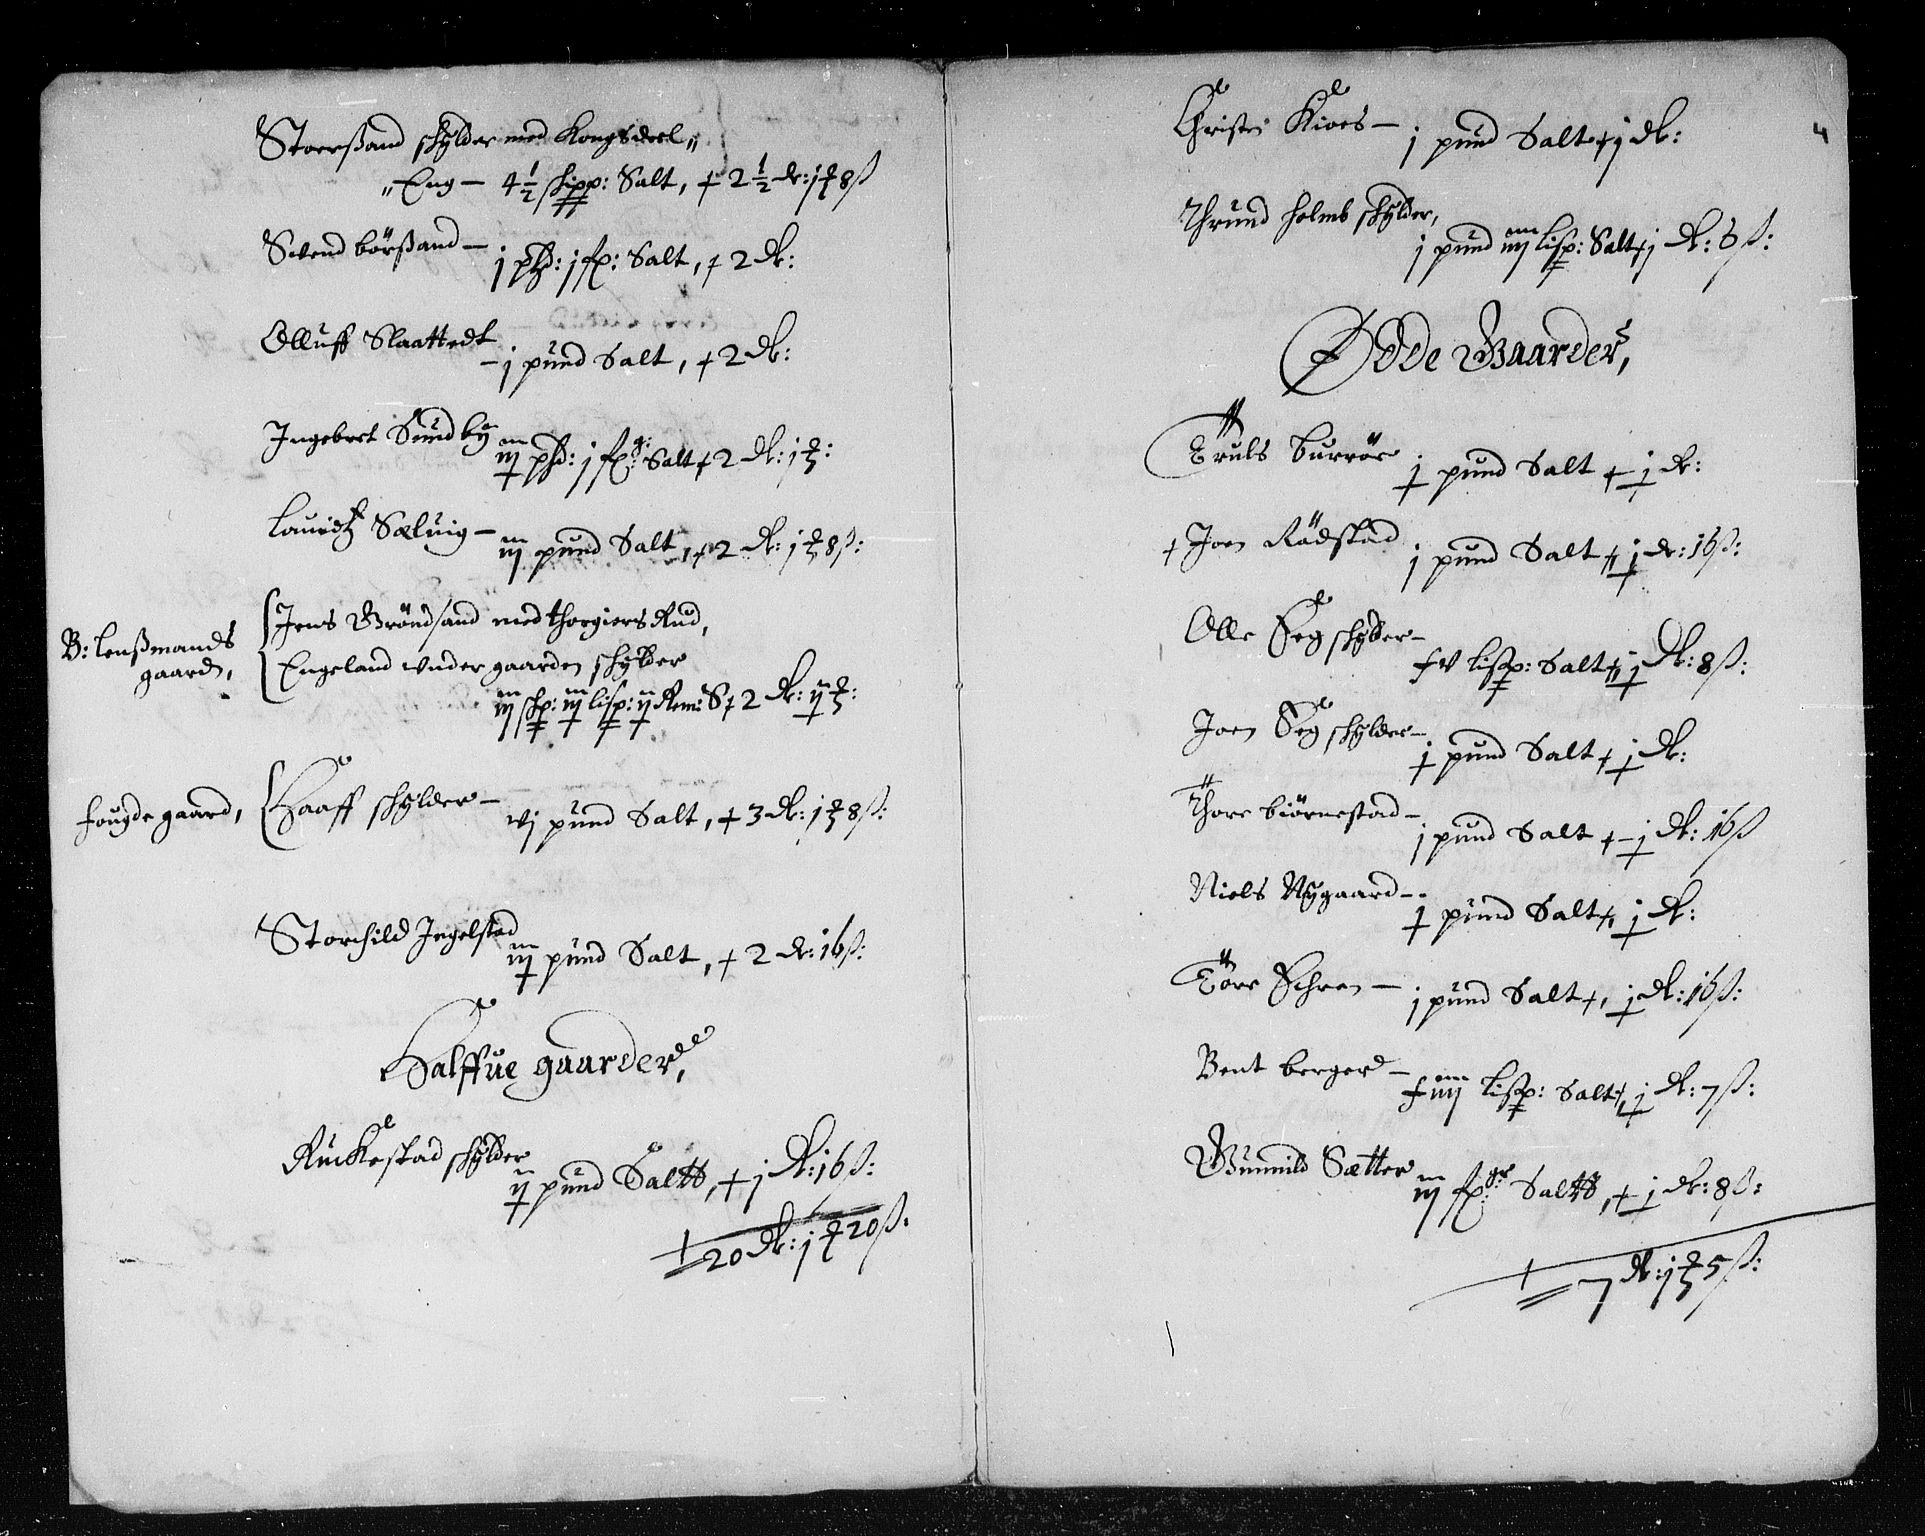 Storßand schylder med Kongsdeel„
„Eng — 4½ schipp: Salt, + 2½ dr: 1 ƺ 8 ß
Svend börßand — j phd: j fp: Salt, + 2 dr:
Olluff Slaattedt — j pund Salt, + 2 dr:
Ingebret Sundby iij phd: j fp: Salt + 2 dr: 1 ƺ:
Lauridtz Sælvig — iij pund Salt, + 2 dr: 1 ƺ 8 ß:
B: lenßmands
gaard,
Jens Grönsand med thorgiersRud,
Engeland under gaarden schylder
iij schp: iij lisp: ij Rem: S + 2 dr: ij ƺ:
fougde gaard,
Haaff schylder — vj pund Salt, + 3 dr: 1 ƺ 8 ß:
Storchild Ingelstad iij pund Salt, + 2 dr: 16 ß:
Halffue gaarder,
Ruckestad schylder ij pund Saltt, + j dr: 16 ß:
20 dr: j ƺ 20 ß:
4
Christi Kioes — j pund Salt + j dr:
Thrund holmb schylder,
j pund iiij lisp: Salt + j dr: 8 ß:
Øde Gaarder,
Truls burröe j pund Salt + j dr:
+ Joen Rödstad j pund Salt + j dr: 16 ß:
Olle Seg schylder —
f v lisp: Salt + j dr: 8 ß:
Joen Seg schylder — j pund Salt + j dr:
Thore biörnestad — j pund Salt + – j dr: 16 ß
Niels Nygaard — j pund Salt +, j dr:
Töre Schren — j pund Salt +, j dr: 16 ß:
Bent berger — f iiij lisp: Salt +, j dr: 7 ß:
Gunnild Sætter iij fp: Saltt, + j dr: 8 ß:
7 dr: 1 ƺ 5 ß: